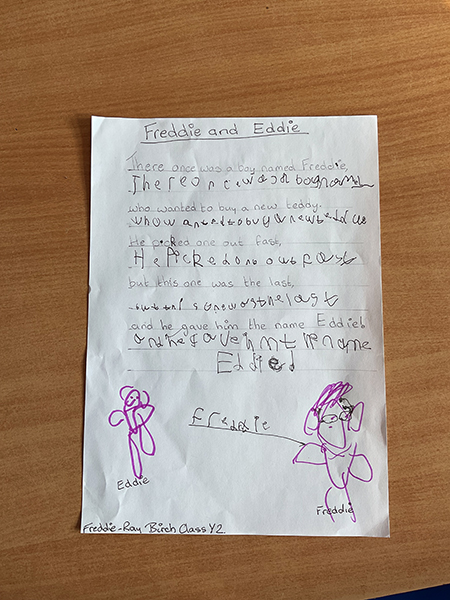 Freddie and Eddie
There once was a boy named Freddie,
Thereoncewasaboynam
who wanted to buy a new teday.
whowantedtobuyanewted
He picked one out fast,
Hepickedoneoutfast
but this one was the last,
butthisonewasthelast
and he gave him the name Eddieb
andhegavehimthename
Eddied
Freddie
Eddie
Freddie
Freddie-Ray Birch Class Y2.